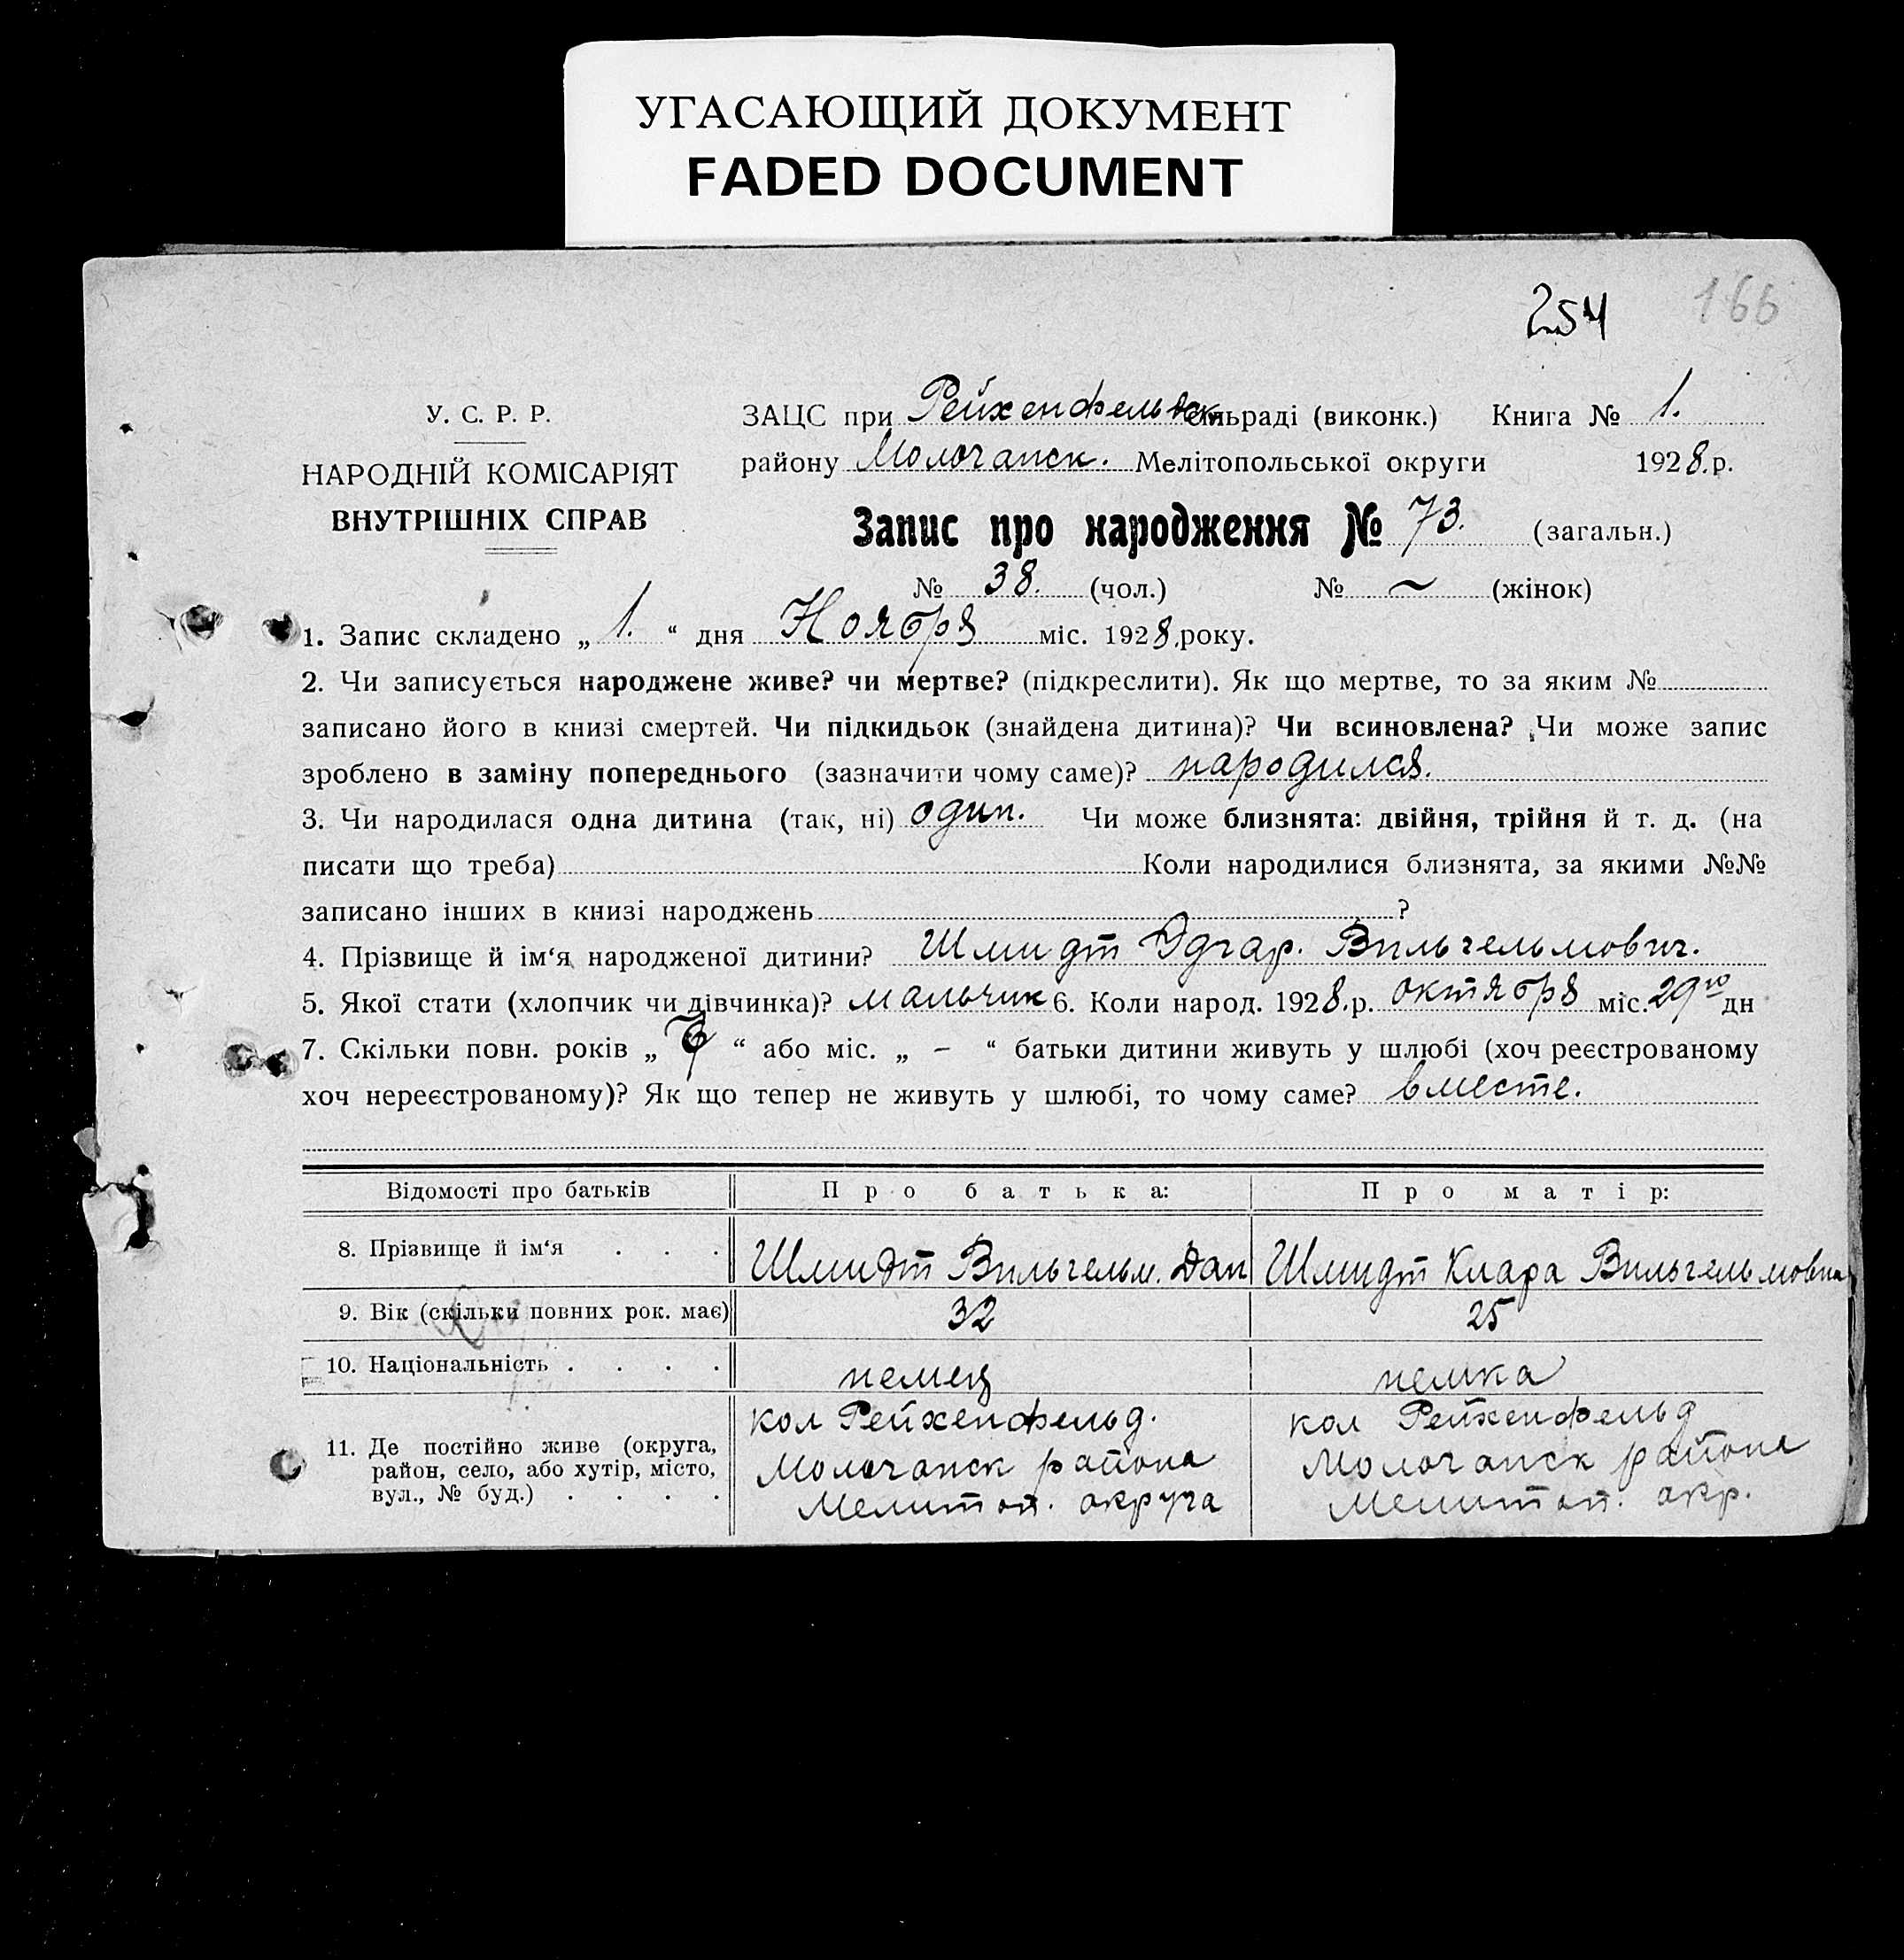 УГАСАЮЩИЙ ДОКУМЕНТ
FADED DOCUMENT
254 166
У. С. Р. Р.
НАРОДНІЙ КОМІСАРІЯТ
ВНУТРІШНІХ СПРАВ
ЗАЦС при Рейхенфельдск сільраді (виконк.) Книга № 1.
району Молочанск. Мелітопольської округи 1928.р.
Запис про народження № 73. (загальн.)
№ 38. (чол.) № ~ (жінок)
1. Запис складено „ 1. “ дня Ноября міс. 1928,року.
2. Чи записується народжене живе? чи мертве? (підкреслити). Як що мертве, то за яким №
записано його в книзі смертей. Чи підкидьок (знайдена дитина)? Чи всиновлена? Чи може запис
зроблено в заміну попереднього (зазначити чому саме)? народился.
3. Чи народилася одна дитина (так, ні) один. Чи може близнята: двійня, трійня й т. д. (на
писати що треба) Коли народилися близнята, за якими №№
записано інших в книзі народжень ?
4. Прізвище й ім‘я народженої дитини? Шмидт Эдгар. Вильгельмович.
5. Якої стати (хлопчик чи дівчинка)? мальчик 6. Коли народ. 1928.р. октября міс. 29го дн
7. Скільки повн. років „ “ або міс. „ – “ батьки дитини живуть у шлюбі (хоч реєстрованому
хоч нереєстрованому)? Як що тепер не живуть у шлюбі, то чому саме? вместе.
Відомості про батьків Про батька: Про матір:
8. Прізвище й ім‘я . . . Шмидт Вильгельм. Дан Шмидт Клара Вильгельмовна
9. Вік (скільки повних рок. має) 32 25
10. Національність . . . . немец немка
11. Де постійно живе (округа, район, село, або хутір, місто, вул., № буд.) . . . .
кол Рейхенфельд.
Молочанск района
Мелитоп. округа
кол Рейхенфельд
Молочанск района
Мелитоп. окр.